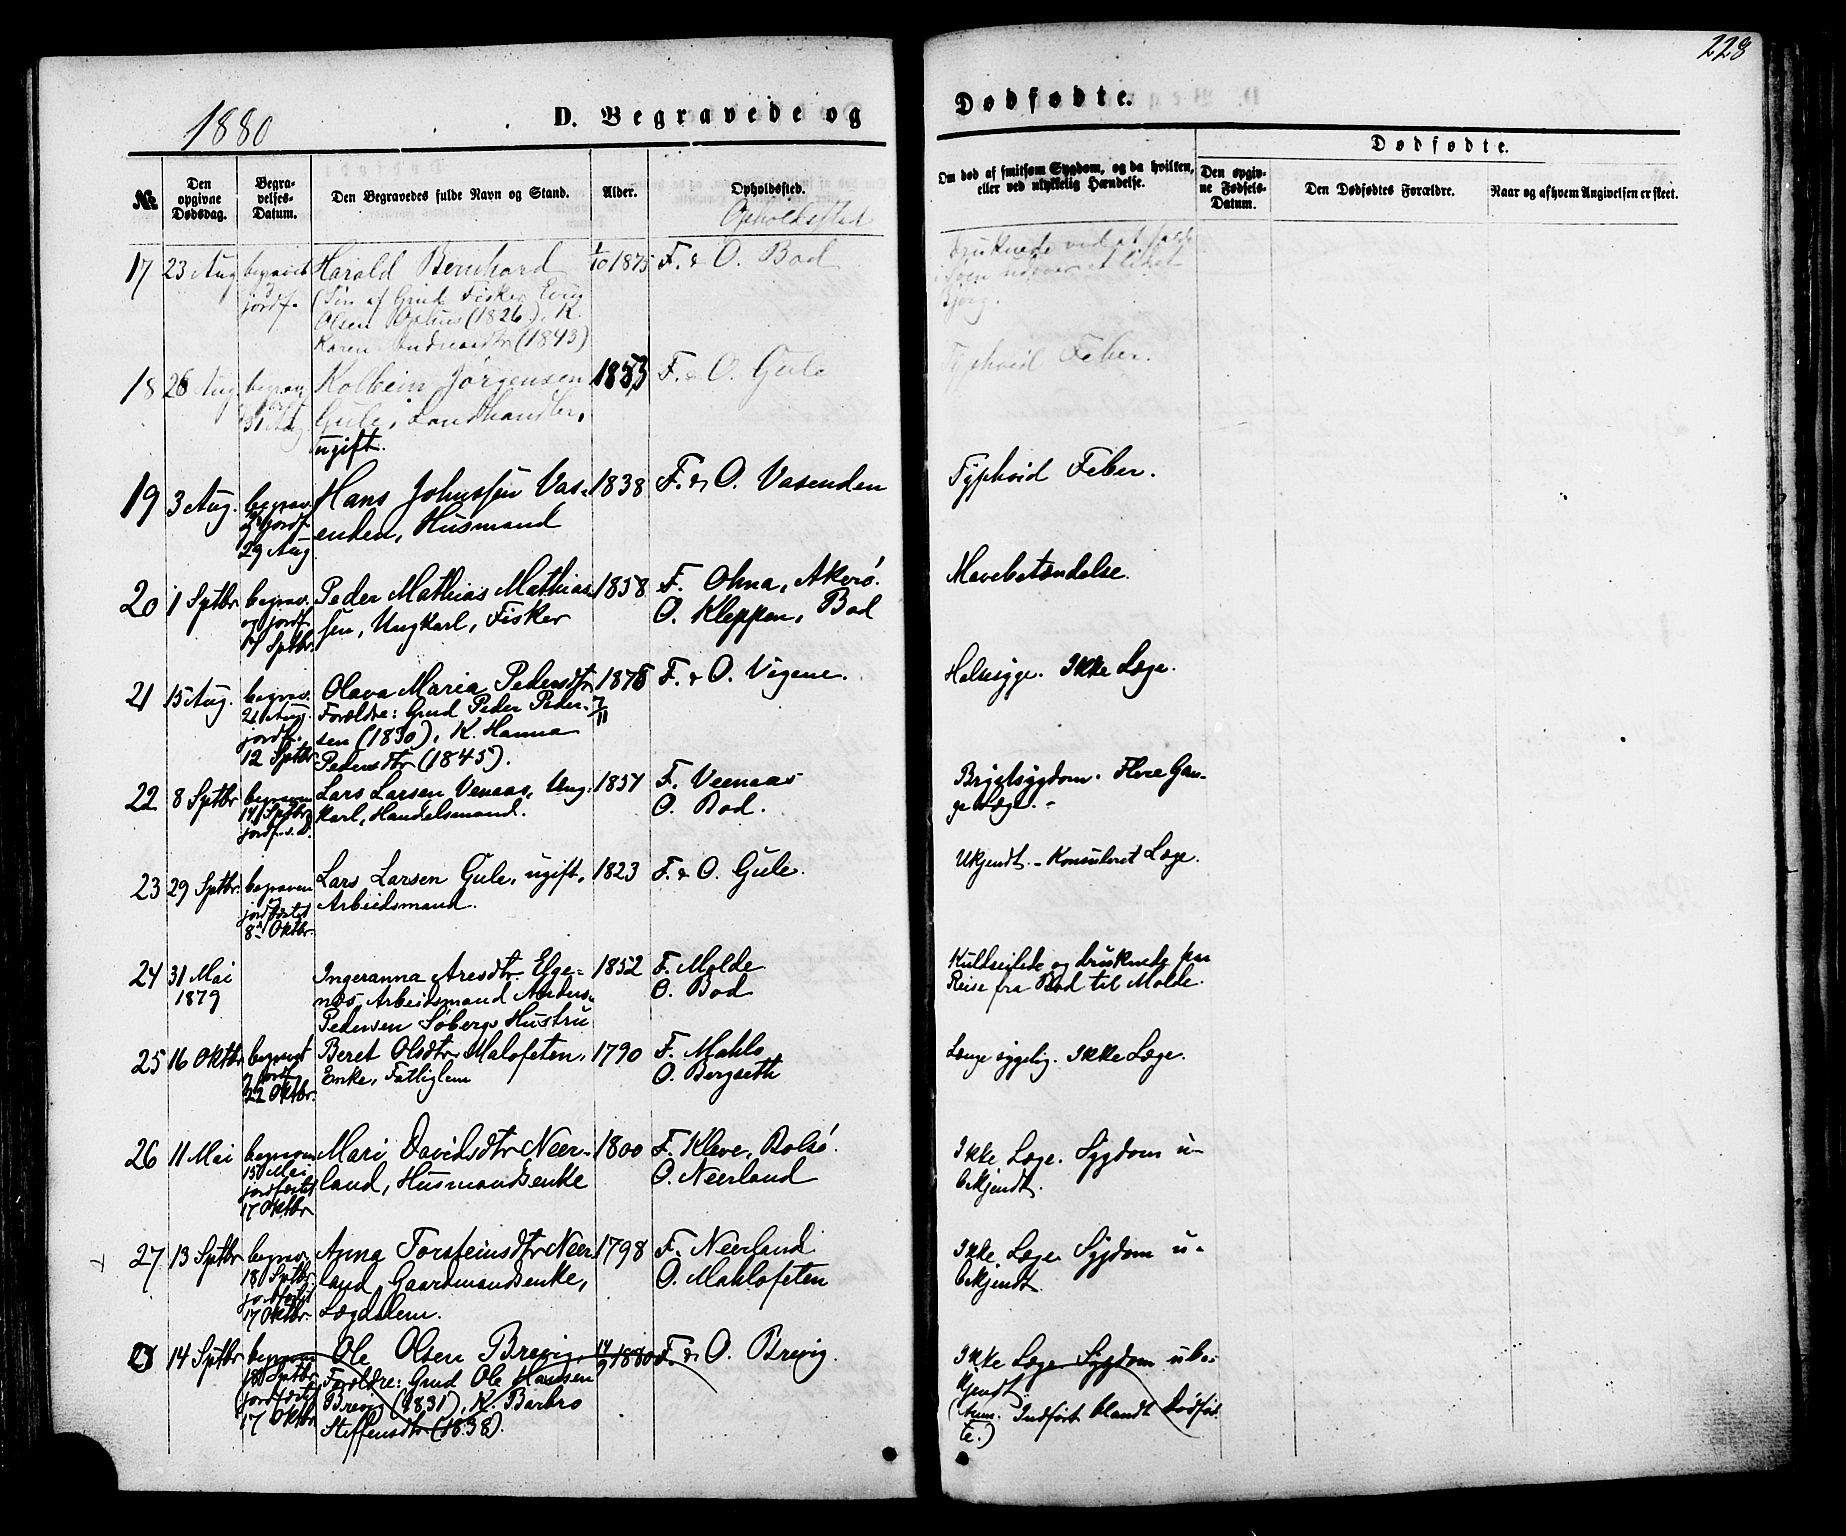 228
1880
D. Begravede og
Dødfødte.
№
Den opgivne Dødsdag.
Begravelses-Datum.
Den Begravedes fulde Navn og Stand.
Alder.
Opholdssted.
Opholdssted
Om død af smitsom Sygdom, og da hvilken,
eller ved ulykkelig Hændelse.
Dødfødte.
Den opgivne Fødsels-Datum.
Den Dødfødtes Forældre.
Naar og af hvem Angivelsen er skeet.
17 23 Aug
jordf.
Harald Bernhard
(Søn af Gmd Fisker
Olsen (1826), K.
Karen (1843)
1/10 1875
F. & O. Bod
Druknede ved at
18 28 Aug
31 Aug
Kolbein Jörgensen
Gule, Landhandler,
ugift.
1853
F. & O. Gule
Typhoid Feber.
19 3 Aug.
begrav.
og jordf.
29 Aug
Hans Johnssen Vas-
enden, Husmand
1838
F. & O. Vasenden
Typhoid Feber.
20 1 Sptbr
begrav.
og jordf.
Sptbr.
Peder Mathias Mathias-
sen, Ungkarl, Fisker
1858
F. Ohna, Akerö.
O. Kleppen, Bod
Mavebetændelse.
21 15 Aug.
begrav.
21 Aug.
jordf.
12 Sptbr
Olava Maria Pedersdtr
Forældre: Gmd Peder Peder-
sen (1830), K. Hanna
Pedersdtr (1845).
1878
7/11
F. & O. Vigene.
Halssyge. Ikke Læge.
22 8 Sptbr
begraven
14 Sptbr
jordf. s. D.
Lars Larsen Venaas, Ung-
karl, Handelsmand.
1851
F. Veenaas
O. Bod.
Brystsygdom. Flere Gan-
ge Læge. -
23 29 Sptbr.
begraven
jordfæstet
8de Oktbr.
Lars Larsen Gule, ugift,
Arbeidsmand.
1823
F. & O. Gule.
Ukjendt. - Konsuleret Læge.
24 31 Mai
1879
Ingeranna Aresdtr Elge-
næs, Arbeidsmand Anders
Pedersen Söbergs Hustru
1852
F. Molde
O. Bod
Kuldseilede og druknede paa
Reise fra Bod til Molde.
25 16 Oktbr
22 Oktbr.
Beret Olsdtr Malofeten,
Enke, Fattiglem
1790
F. Mahlo
O. Bergseth
Længe sygelig. Ikke Læge.
26 11 Mai
begraven
15 Mai
jordfæstet
17 Oktbr
Mari Davidsdtr Neer-
land, Husmandsenke
1800
F. Kleve, Bolsö.
O. Neerland
Ikke Læge. Sygdom u-
bekjendt.
27 13 Sptbr
begrav.
18 Sptbr.
jordfæstet
17 Oktbr.
Anna Torsteinsdtr Neer-
land, Gaardmandsenke,
Lægdslem.
1798
F. Neerland
O. Mahlofeten
Ikke Læge. Sygdom u-
bekjendt.
14 Sptbr
begraven
18 Sptbr.
jordfæstet
17 Oktbr
Ole Olsen Brevig,
Forældre: Gmd Ole Hansen
Brevig (1831), K. Barbro
Steffensdtr (1838).
14/9 1880
F. & O. Brevig.
Ikke Læge. Sygdom ube-
kjendt.
(Anm. Indført blandt Dødfød-
te.)